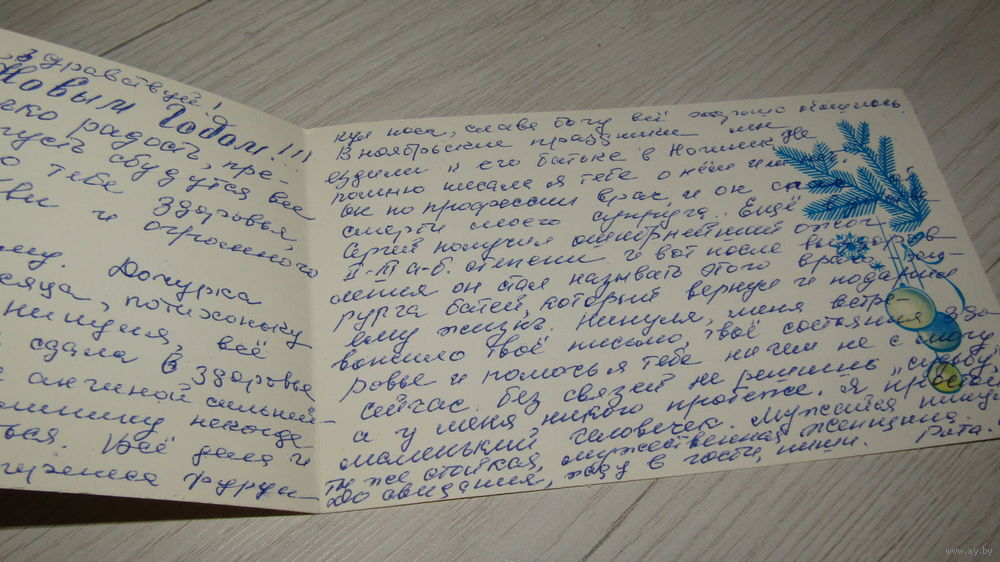 Здравствуй!
Новым Годом!!!
ко радость, пре-
пусть сбудутся все
о тебе здоровья,
ви и огромного
му. Дочурка
сяца, потихоньку
нинуля, всё
сдала в здоровье
ангиной сильней-
некогда
ться. Всё дела и
фурун-
кул носа, слава богу всё хорошо обошлось.
В ноябрьские праздники мы
ездили к его батьке в Не
помню писала я тебе о нём или нет.
ок по профессии врач, и он спас от
смерти моего супруга. Ещё
Сергей получил ожог
II-III а-б. степени. И вот после выздоров
ления он стал называть этого врача хи-
рурга батей, который вернул и подарил
ему жизнь. Нинуля, меня встре-
вожило твоё письмо, твоё состояние здо
ровье и помочь я тебе ничем не смогу
сейчас. Без связей не решишь судьбу,
а у меня никого просто
маленький человечек. Мужайся
ты же стойкая, мужественная женщина.
До свидания, жду в гости, пиши. Рита.
www.ay.by